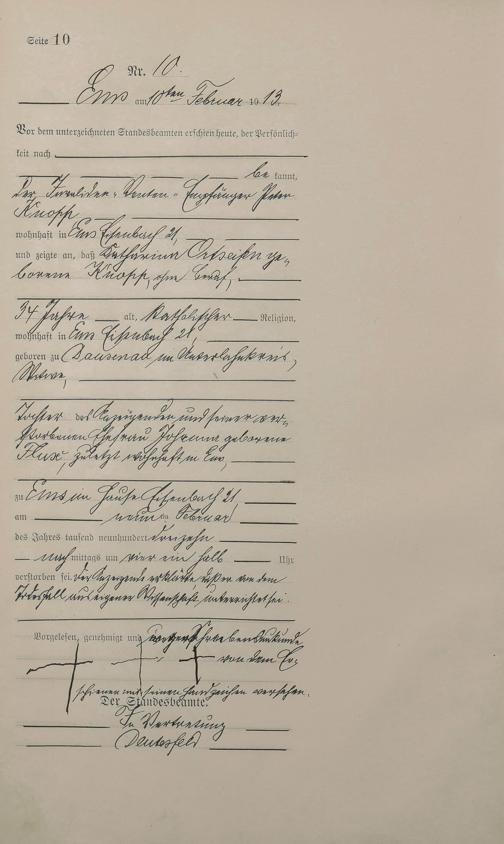 Seite 10
Nr. 10.
Ems am 10ten Februar 1913.
Vor dem unterzeichneten Standesbeamten erschien heute, der Persönlich-
keit nach
be kannt,
der Invaliden-Renten-Empfänger Peter
Knopp
wohnhaft in Ems Eisenbach 21,
und zeigte an, daß Katharina Ortseifen ge-
borene Knopp, ohne Beruf,
34 Jahre alt, katholischer Religion,
wohnhaft in Ems Eisenbach 21,
geboren zu Dausenau im Unterlahnkreis,
Witwe,
Tochter des Anzeigenden und seiner ver-
storbenen Ehefrau Johanna geborene
Flux, zuletzt wohnhaft in Ems,
zu Ems im Hause Eisenbach 21
am neunten Februar
des Jahres tausend neunhundert dreizehn
nach mittags um vier ein halb Uhr
verstorben sei. Der Anzeigende erklärte, daß er von dem
Todesfall aus eigener Wissenschaft unterrichtet sei.
Vorgelesen, genehmigt und wegen Schreibensunkunde
von dem Er-
schienenen mit seinem Handzeichen versehen.
Der Standesbeamte.
In Vertretung